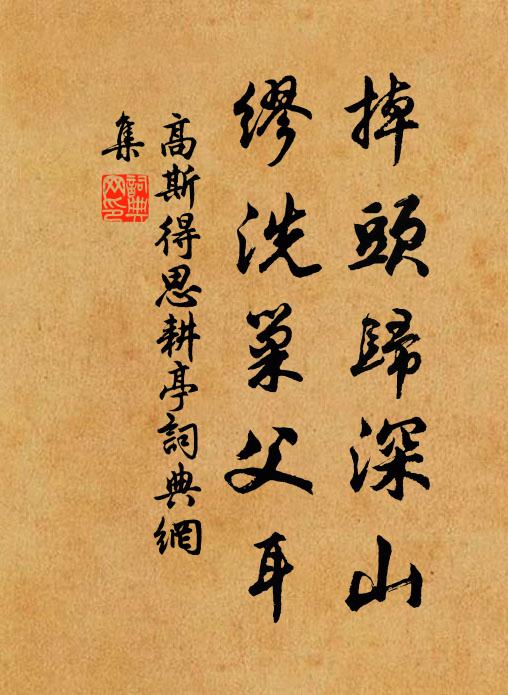 掉頭歸深山
繆洗巢父耳
高斯得思耕亭詞典網
集
詞典
网印